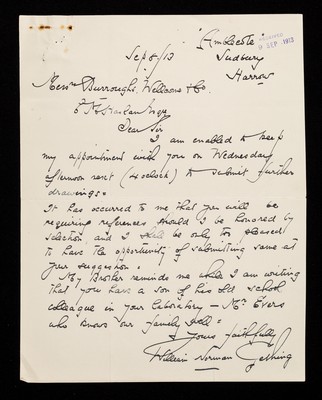 "Amblecote"
Sudbury
Harrow
RECEIVED
9 SEP. 1913
Sep 8/13
Messrs Burroughs. Wellcome & Co.
Dear Sir
I am enabled to keep
my appointment with you on Wednesday
afternoon next (4 oclock) to submit further
drawings.
It has occurred to me that you will be
requiring references should I be honored by
selection and I shall be only too pleased
to have the opportunity of submitting same at
your suggestion.
My Brother reminds me while I am writing
that you have a son of his old school
colleague in your Laboratory — Mr. Evers
who knows our family well.
Yours faithfully
William Norman Gething